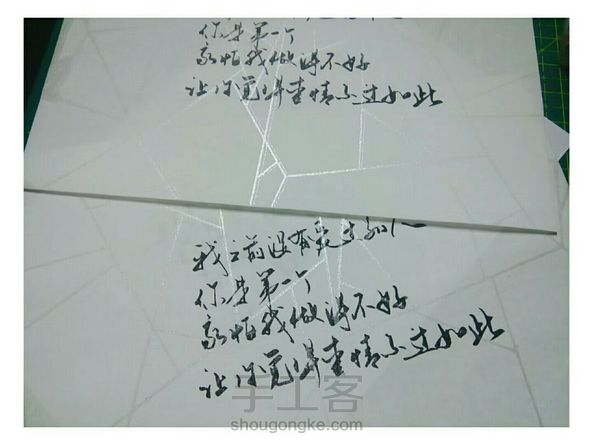 你是第一个
我怕我做得不好
让你觉得爱情不过如此
我之前没有爱过别人
你是第一个
我怕我做得不好
让你觉得爱情不过如此
手工客
shougongke.com